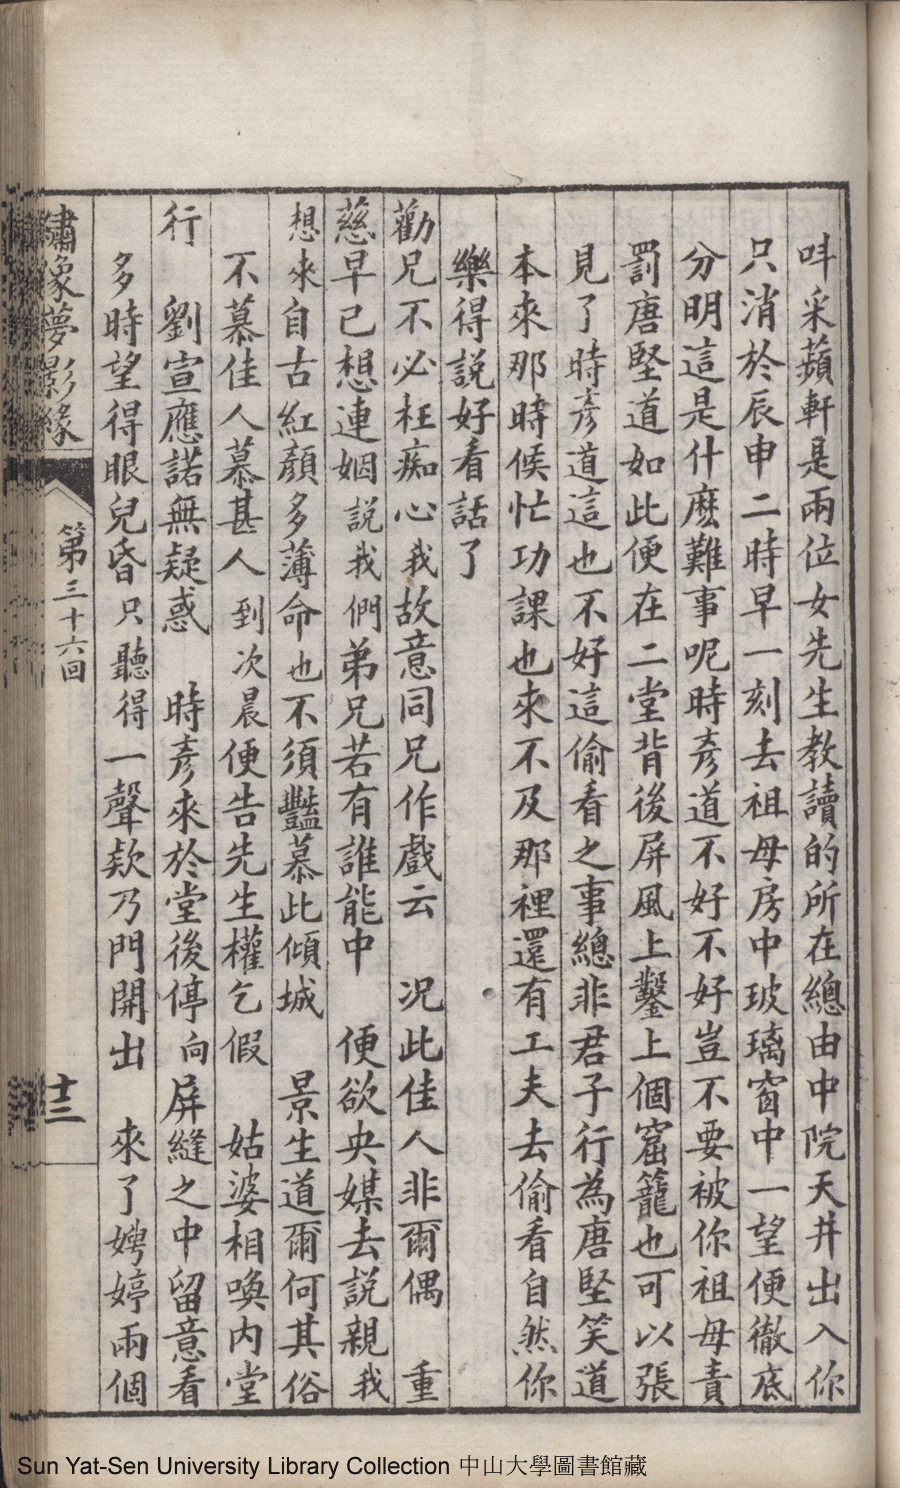 呌采蘋軒是兩位女先生教讀的所在總由中院天井出入你
只消於辰申二時早一刻去祖母房中玻璃窗中一望便徹底
分明這是什麽難事呢時彥道不好不好豈不要被你祖母責
罰唐堅道如此便在二堂背後屏風上鑿上個窟籠也可以張
見了時彥道這也不好這偷看之事總非君子行為唐堅笑道
本來那時候忙功課也來不及那裡還有工夫去偷看自然你
樂得説好看話了
勸兄不必枉痴心我故意同兄作戲云　況此佳人非爾偶　重
慈早已想連姻説我們弟兄若有誰能中　便欲央媒去説親我
想來自古紅顏多薄命也不須豔慕此傾城　景生道爾何其俗
不慕佳人慕甚人到次晨便告先生權乞假　姑婆相喚内堂
行　劉宣應諾無疑惑　時彥來於堂後停向屏縫之中留意看
多時望得眼兒昏只聽得一聲欸乃門開出　來了娉婷兩個
繡象夢影緣
第三十六回
十三
Sun Yat-Sen University Library Collection 中山大學圖書館藏